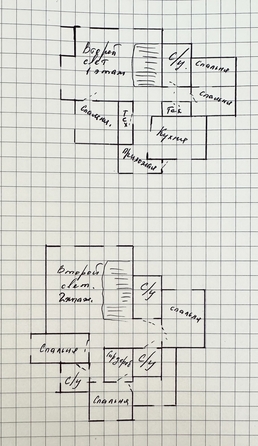 Второй
свет
1 этаж
С/у
Спальня
Спальня
Тех
Тех.
Кухня
Прихожая
Второй
свет.
2 этаж.
С/у
Спальня
Спальня
Гардероб
С/у
С/у
Спальня